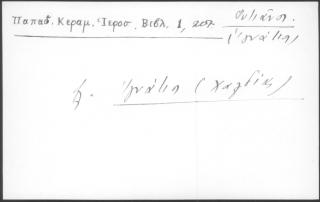 Παπαδ. Κεραμ. Ἱεροσ. Βιβλ. 1, 207.
(Ἰγνάτιος)
Ἰγνάτιος (Χαλδίας)